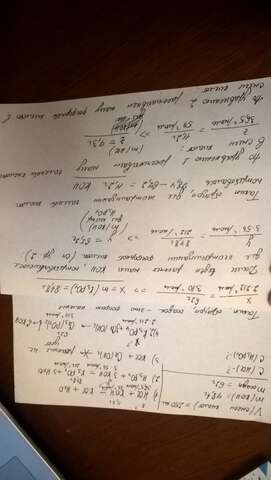 V(смеси кислот) = 250 мл
m(KOH) = 78,4г
m осадка = 62г
C(HCl) - ?
C(H₃PO₄) - ?
1) HCl + KOH = KCl + H₂O
2) H₃PO₄ + 3KOH = K₃PO₄ + 3H₂O
3) KCl + Ca(OH)₂ реакция не идет
x г 62г
2K₃PO₄ + 3Ca(OH)₂ → Ca₃(PO₄)₂↓ + 6KOH
2·212 г/моль 310 г/моль
Таким образом, осадок - это фосфат кальция
x / 2·212 г/моль = 62г / 310 г/моль => x = m(K₃PO₄) = 84,8г
Далее ведем расчет массы KOH, потребовавшегося
для нейтрализации фосфорной кислоты (см. ур. 2)
y / 3·56 г/моль = 84,8г / 212 г/моль => y = 67,2г
(m(KOH)
для нейтр
H₃PO₄)
Таким образом, для нейтрализации соляной кислоты
потребовалось 78,4 - 67,2 = 11,2г KOH
По уравнению 1 рассчитываем массу соляной кислоты
в смеси кислот:
z / 36,5 г/моль = 11,2г / 56 г/моль => z = 7,3г
(m(HCl)
По уравнению 2 рассчитываем массу фосфорной кислоты в
смеси кислот: